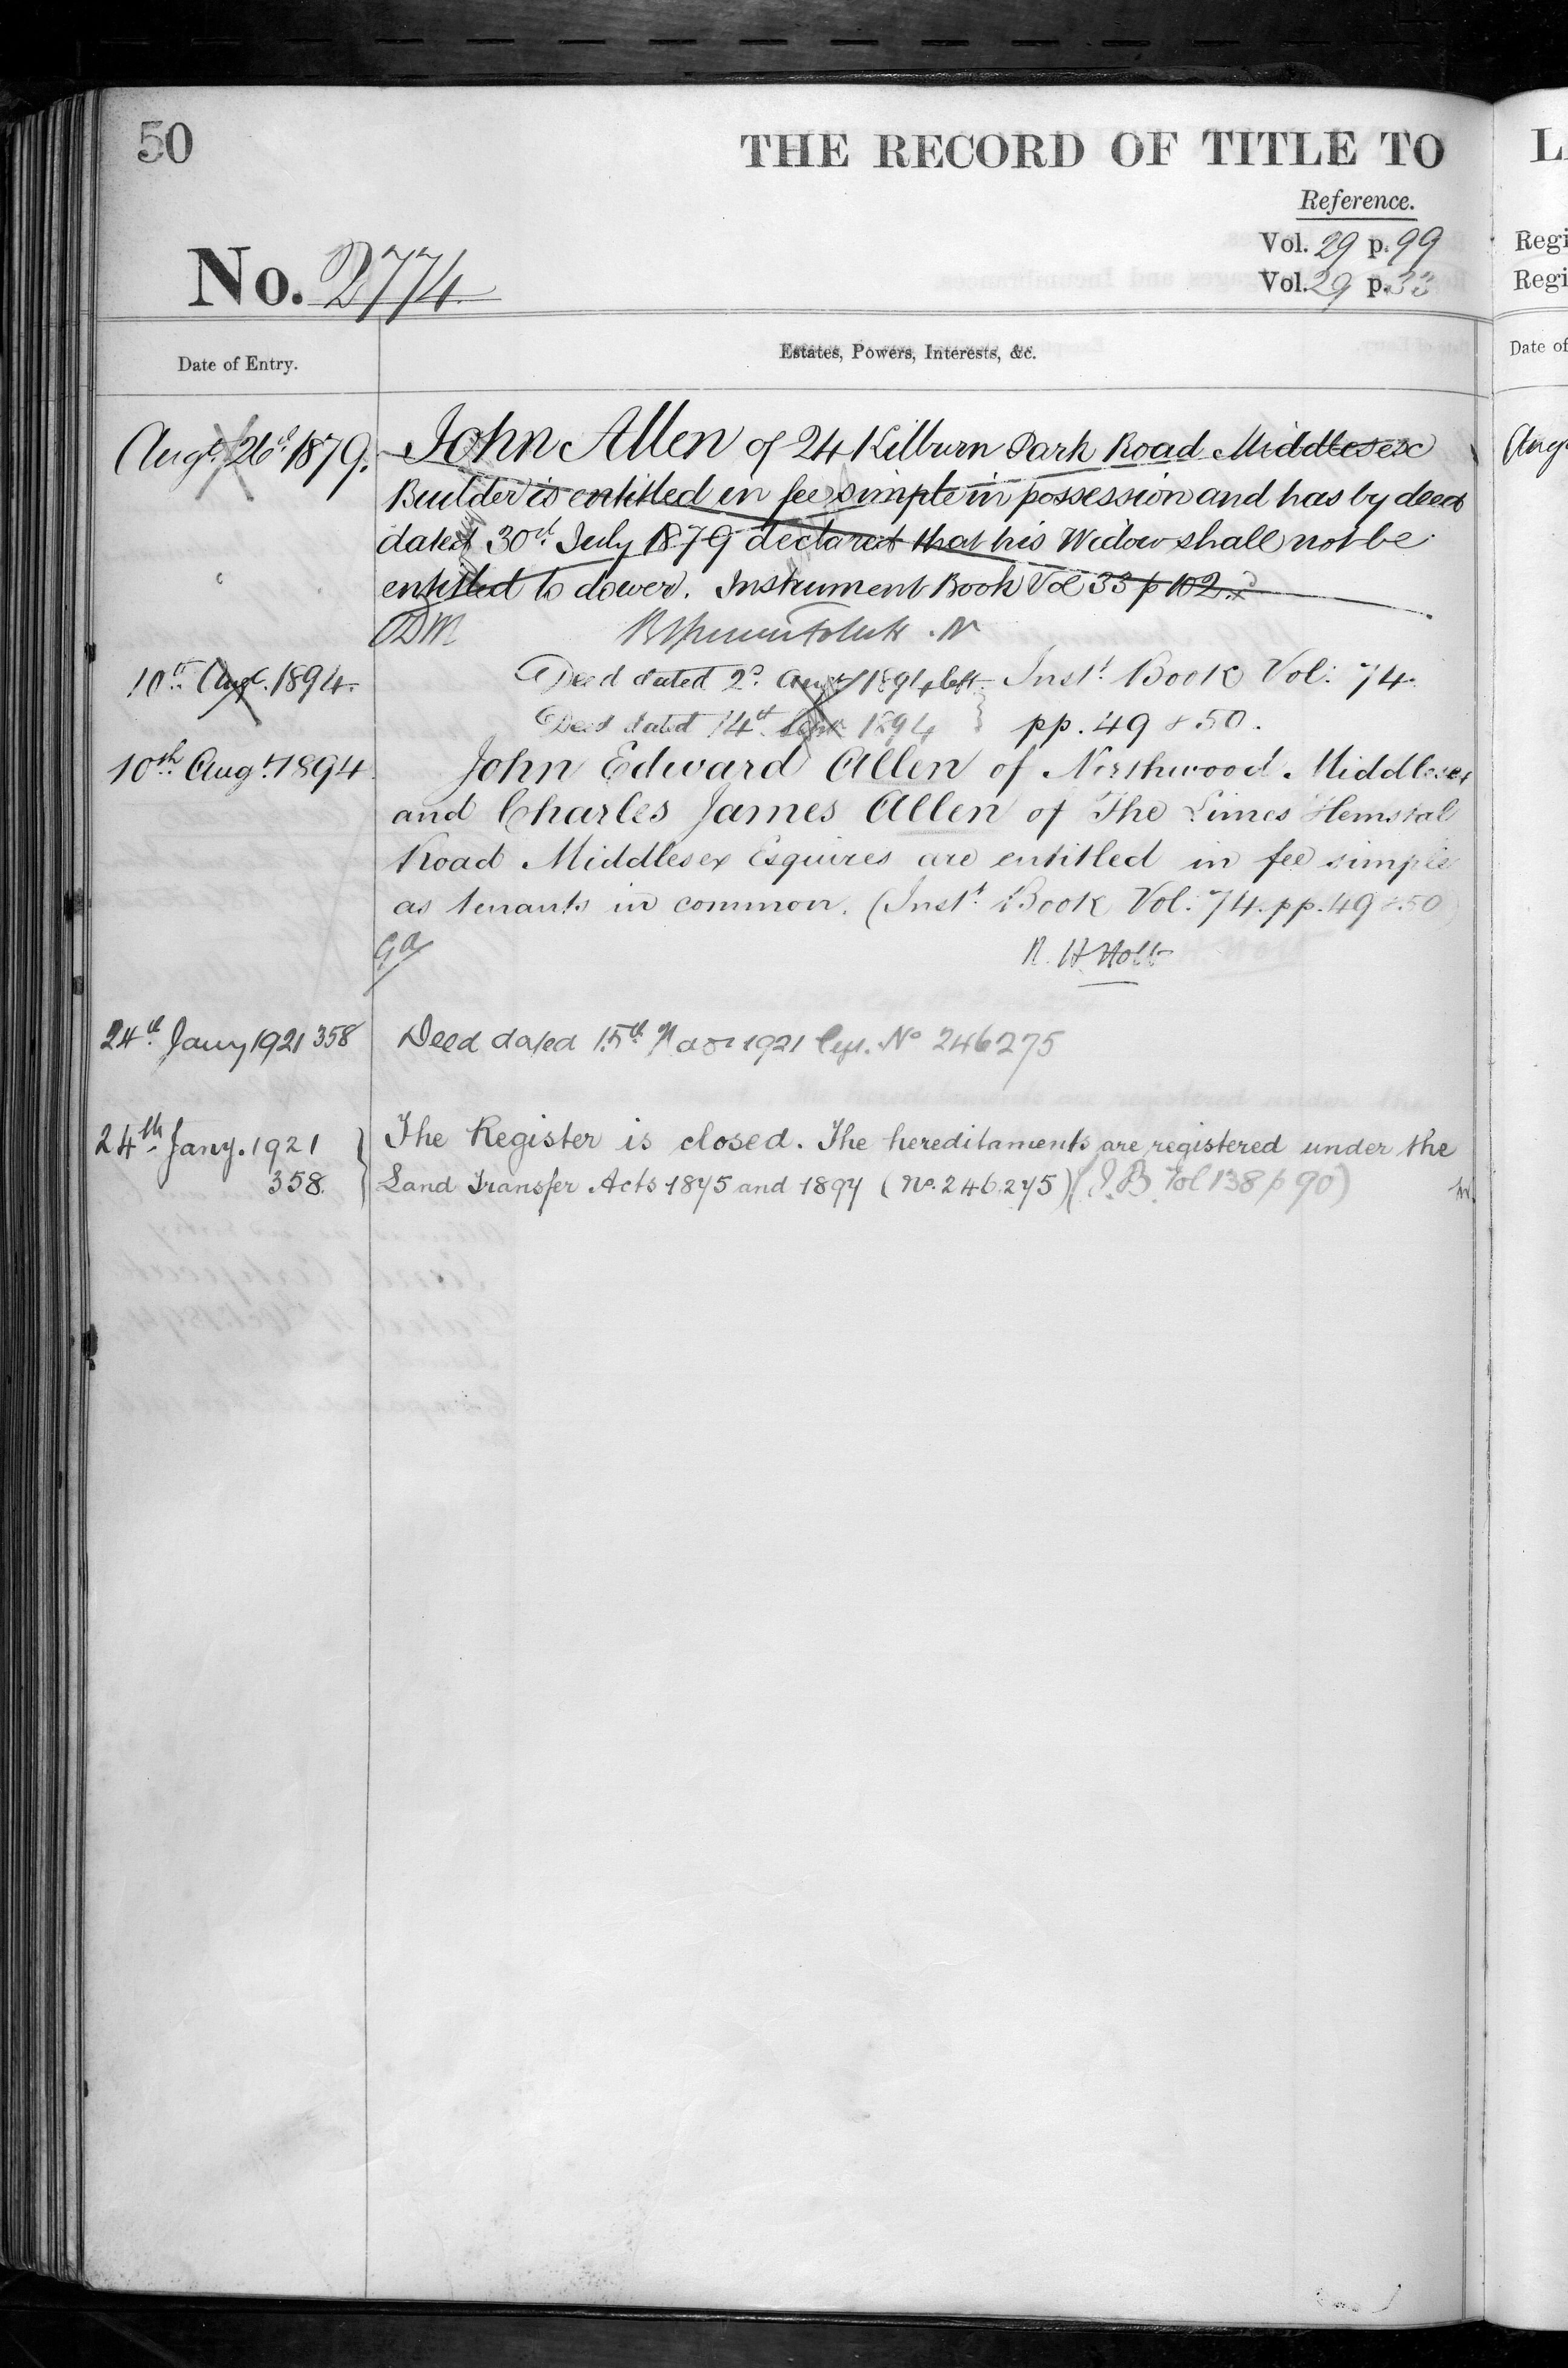 50
THE RECORD OF TITLE TO
Reference.
Vol. 29 p. 99
Vol. 29 p. 33
No. 2774
Date of Entry.
Estates, Powers, Interests, &c.
Augt. 26th 1879.
John Allen of 24 Kilburn Park Road Middlesex
Builder is entitled in fee simple in possession and has by deed
dated 30th July 1879 declared that his Widow shall not be
entitled to dower. Instrument Book Vol 33 p 102.
DM
10th Augt. 1894.
Deed dated 2d. Augt 1894 left. Inst. Book Vol: 74.
Deed dated 14th Sepr. 1894 } pp. 49 & 50.
10th Augt. 1894
John Edward Allen of Northwood Middlesex
and Charles James Allen of The Limes Hemstal
Road Middlesex Esquires are entitled in fee simple
as tenants in common. (Inst. Book Vol: 74. pp. 49 & 50)
R. H. Holt
24th Jany 1921 358
Deed dated 15th 1921 No 246275
24th Jany. 1921
358.
The Register is closed. The hereditaments are registered under the
Land Transfer Acts 1875 and 1897 (No. 246275) (I.B. Vol 138 p 90)
L
Regi
Regi
Date of
Aug